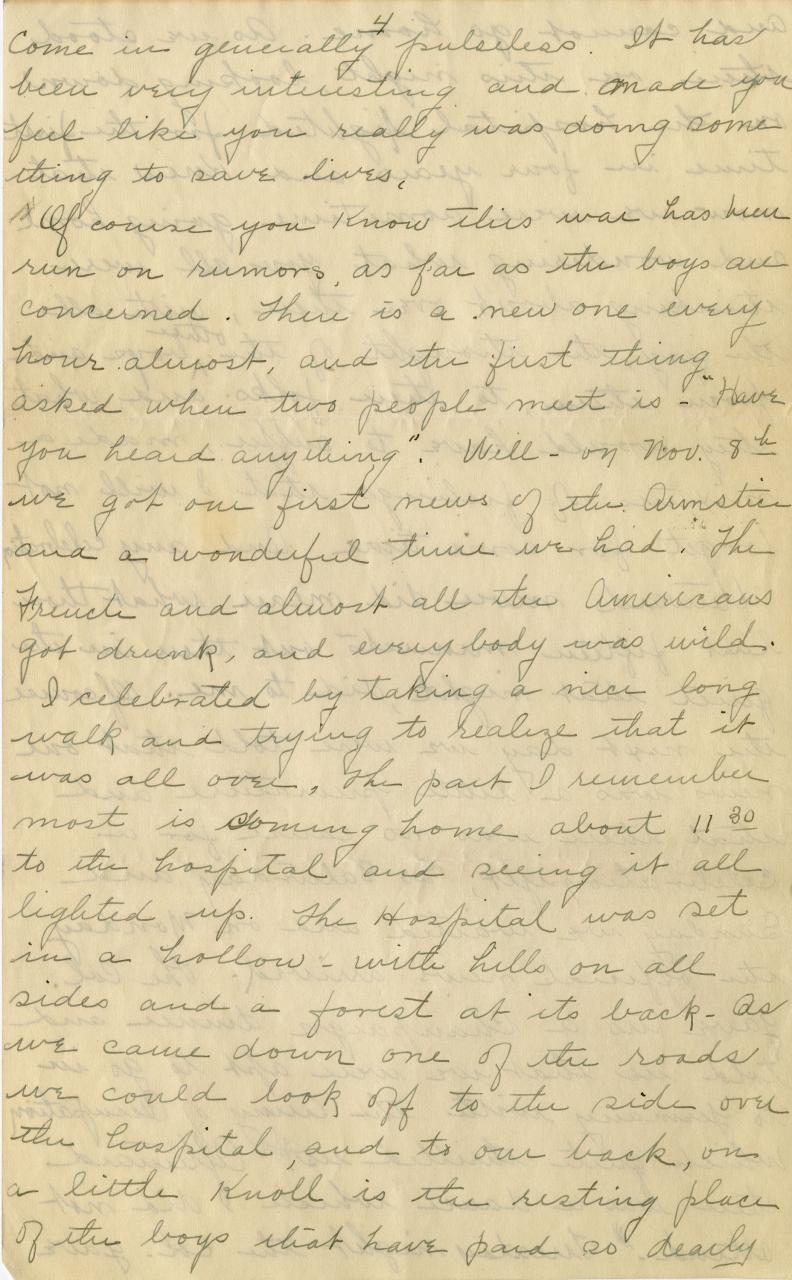 4
Come in generally pulseless. It has
been very interesting and made you
feel like you really was doing some
thing to save lives.
Of course you know this war has been
run on rumors, as far as the boys are
concerned. There is a new one every
hour almost, and the first thing
asked when two people meet is - "Have
you heard anything". Well - on Nov. 8th
we got our first news of the Armstice
and a wonderful time we had. The
French and almost all the Americans
got drunk, and everybody was wild.
I celebrated by taking a nice long
walk and trying to realize that it
was all over. The part I remember
most is coming home about 11 30
to the hospital and seeing it all
lighted up. The Hospital was set
in a hollow - with hills on all
sides and a forest at its back - As
we came down one of the roads
we could look off to the side over
the hospital, and to our back, on
a little Knoll is the resting place
of the boys that have paid so dearly